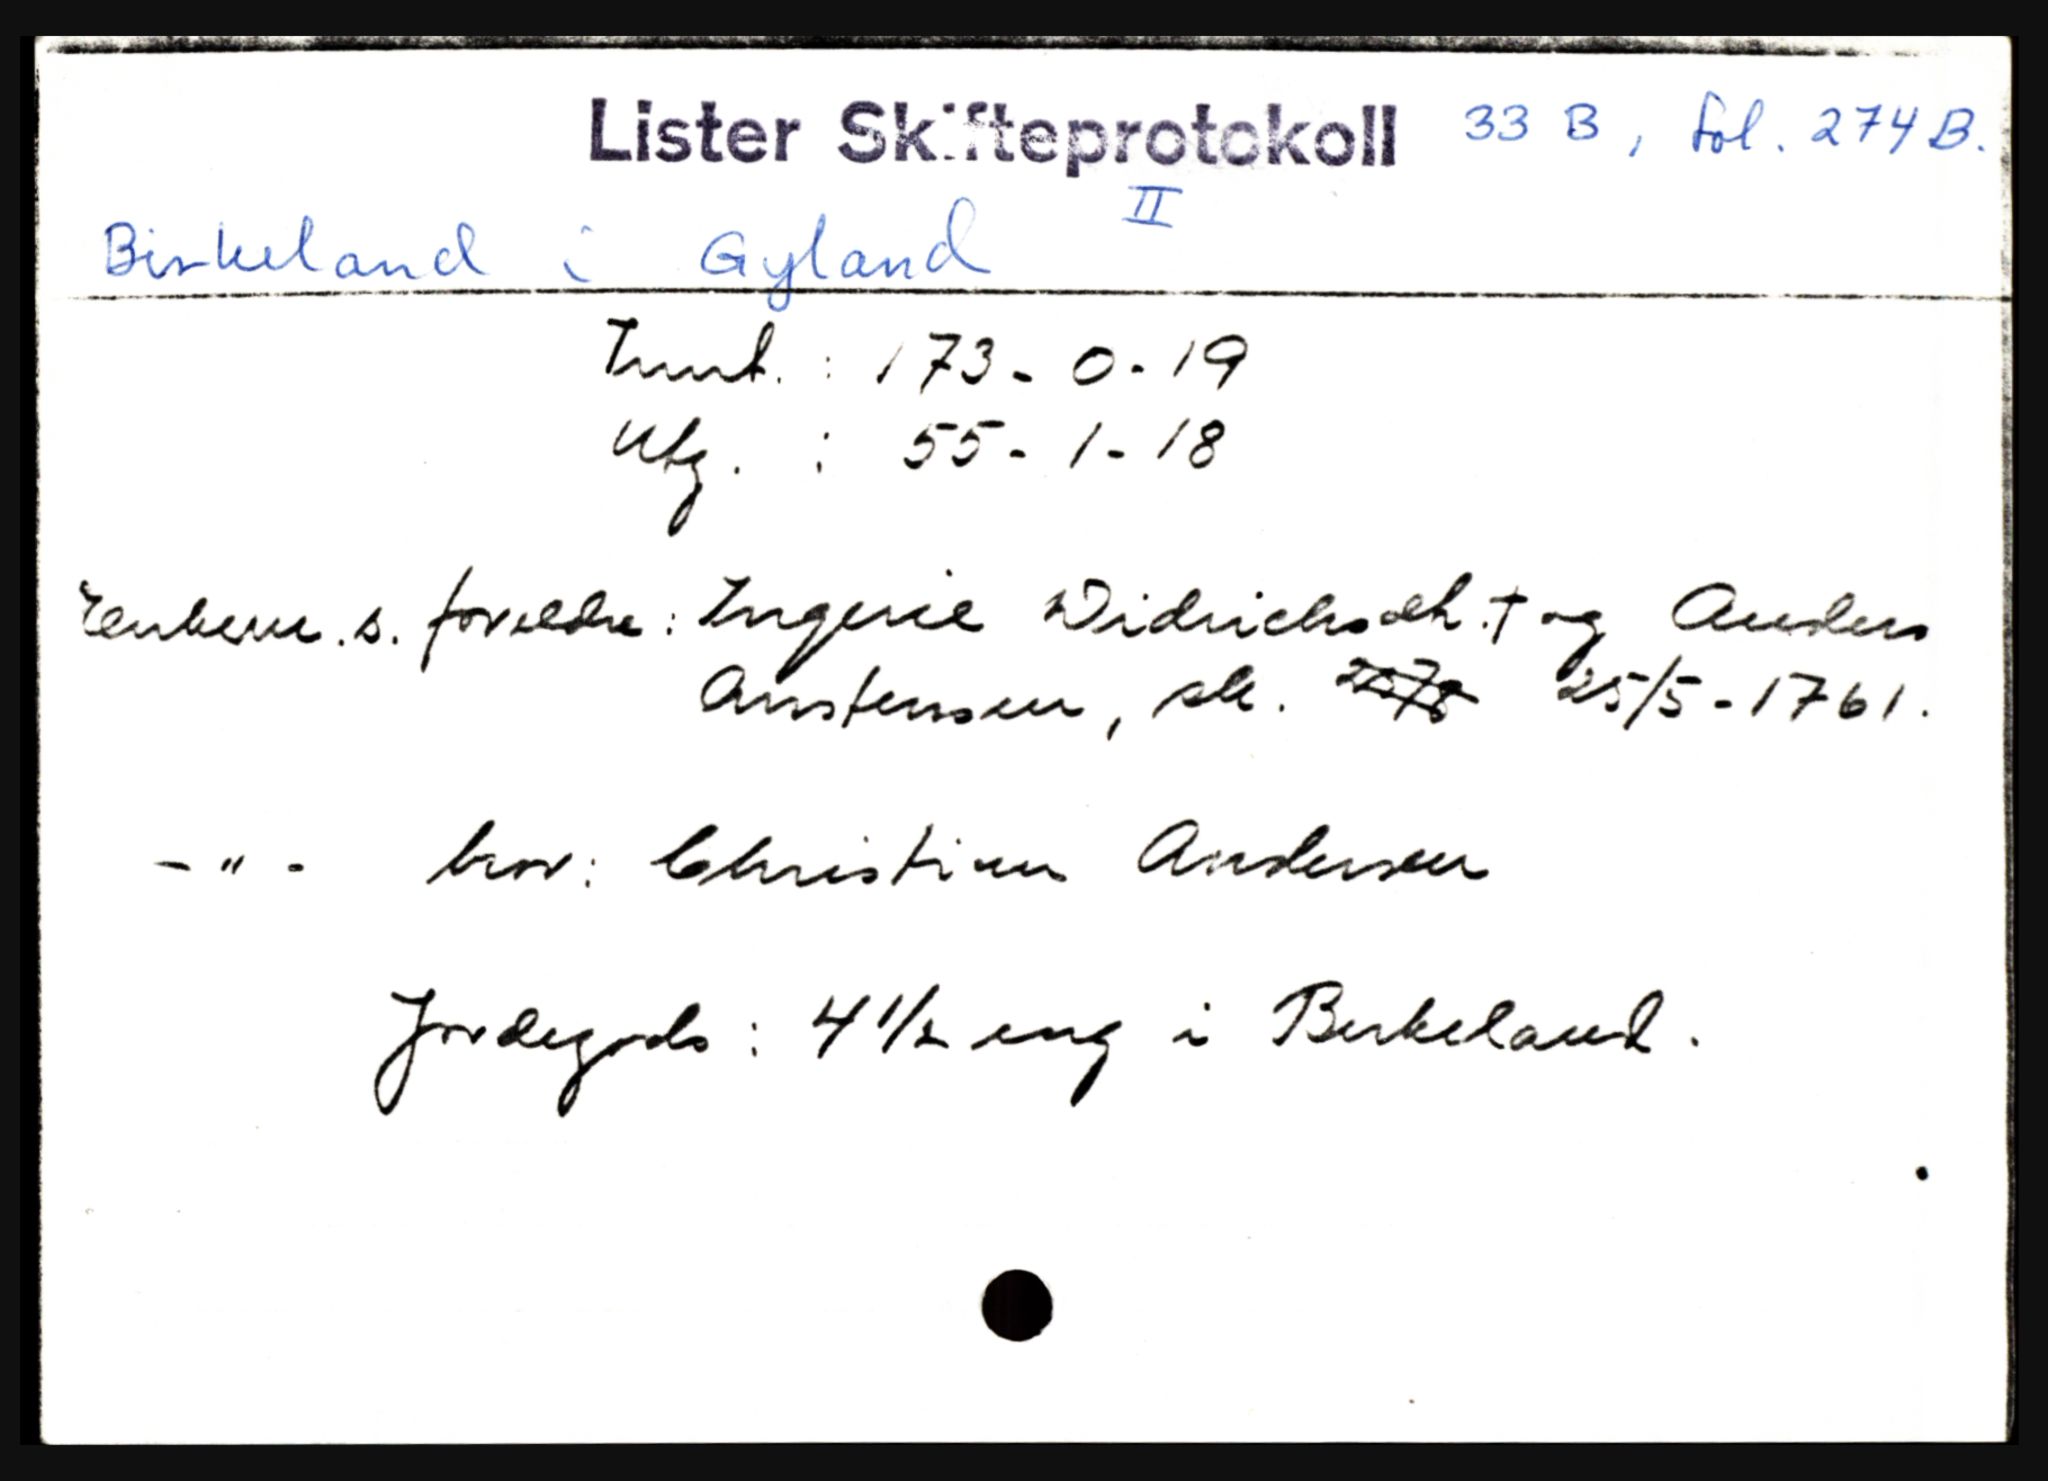 Lister Skifteprotokoll 33 B, fol. 274 B.
II
Birkeland i Gyland
Innt. : 173 - 0 - 19
Utg. : 55 - 1 - 18
Enkem. s. foreldre: Ingerie Didrichsdt. † og Anders
Anstensen, sk. 25/5 - 1761.
- " - bror: Christian Andersen
Jordegods: 4 1/2 eng i Birkeland.